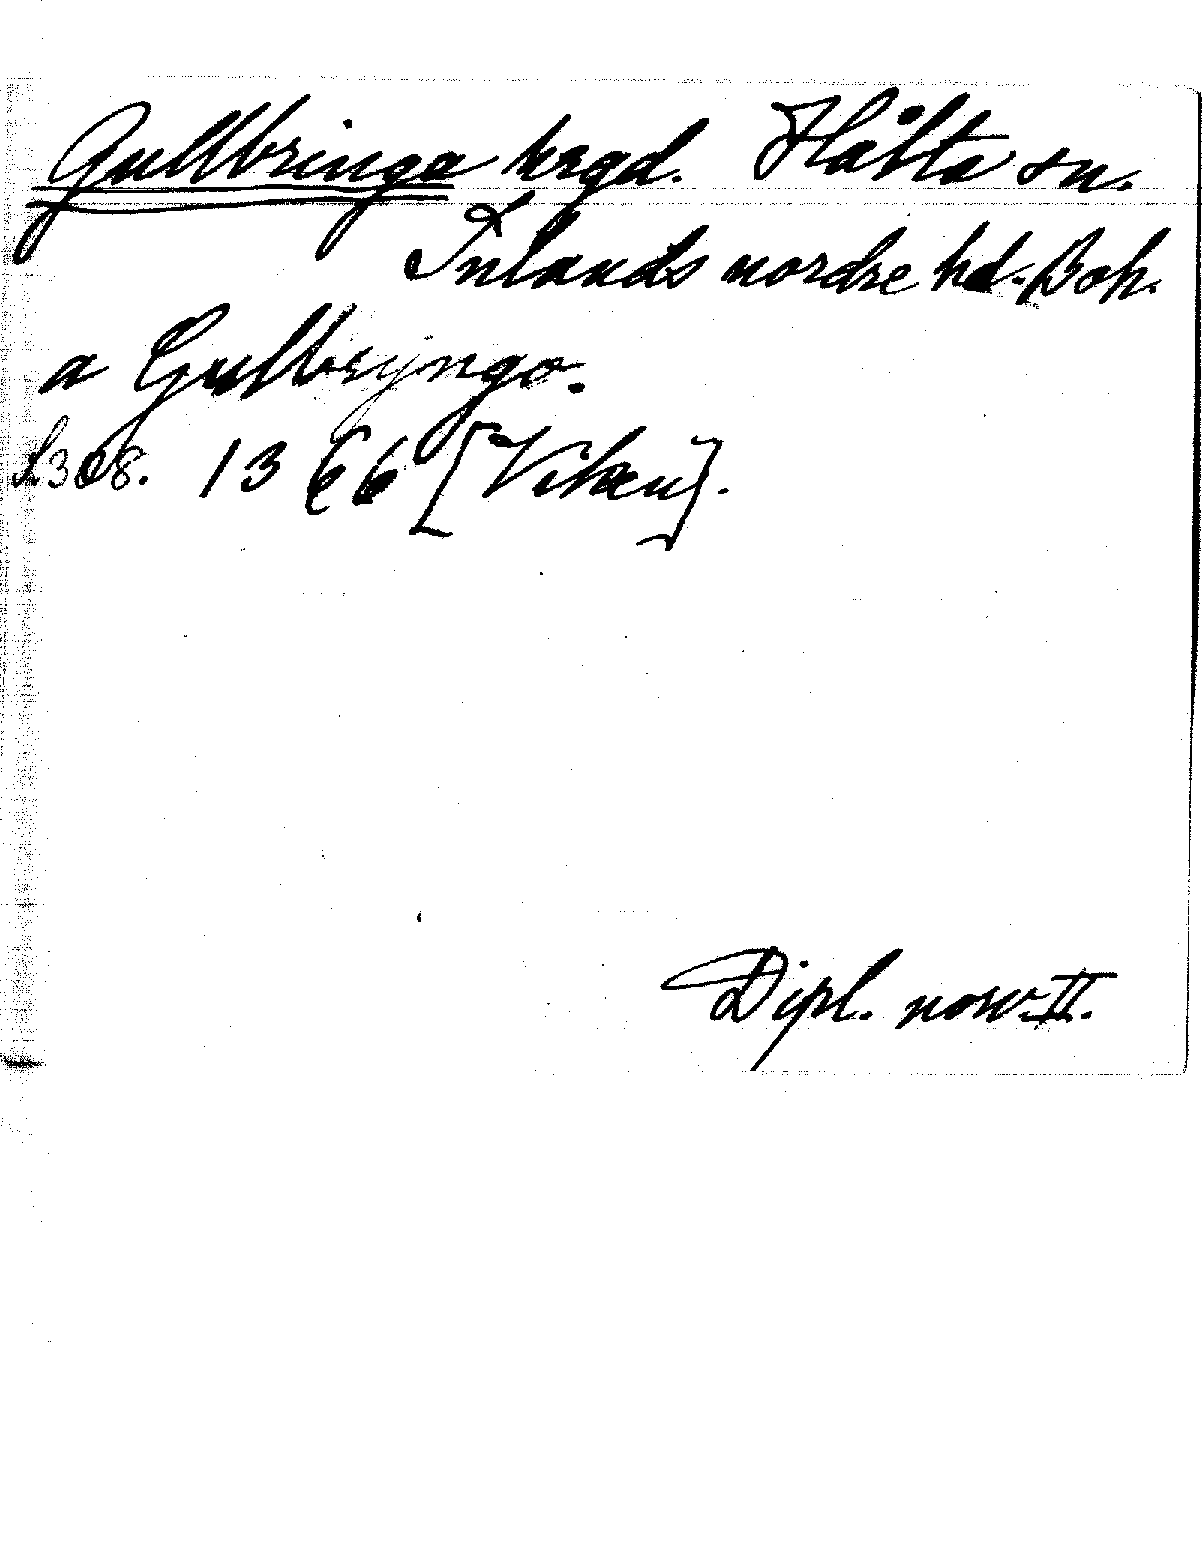 Gullbringa hrgd. Hålta sn.
Inlands nordre hd. Boh.
a Gulbryngo.
S. 308. 1366 [Viken].
Dipl. norv. II.